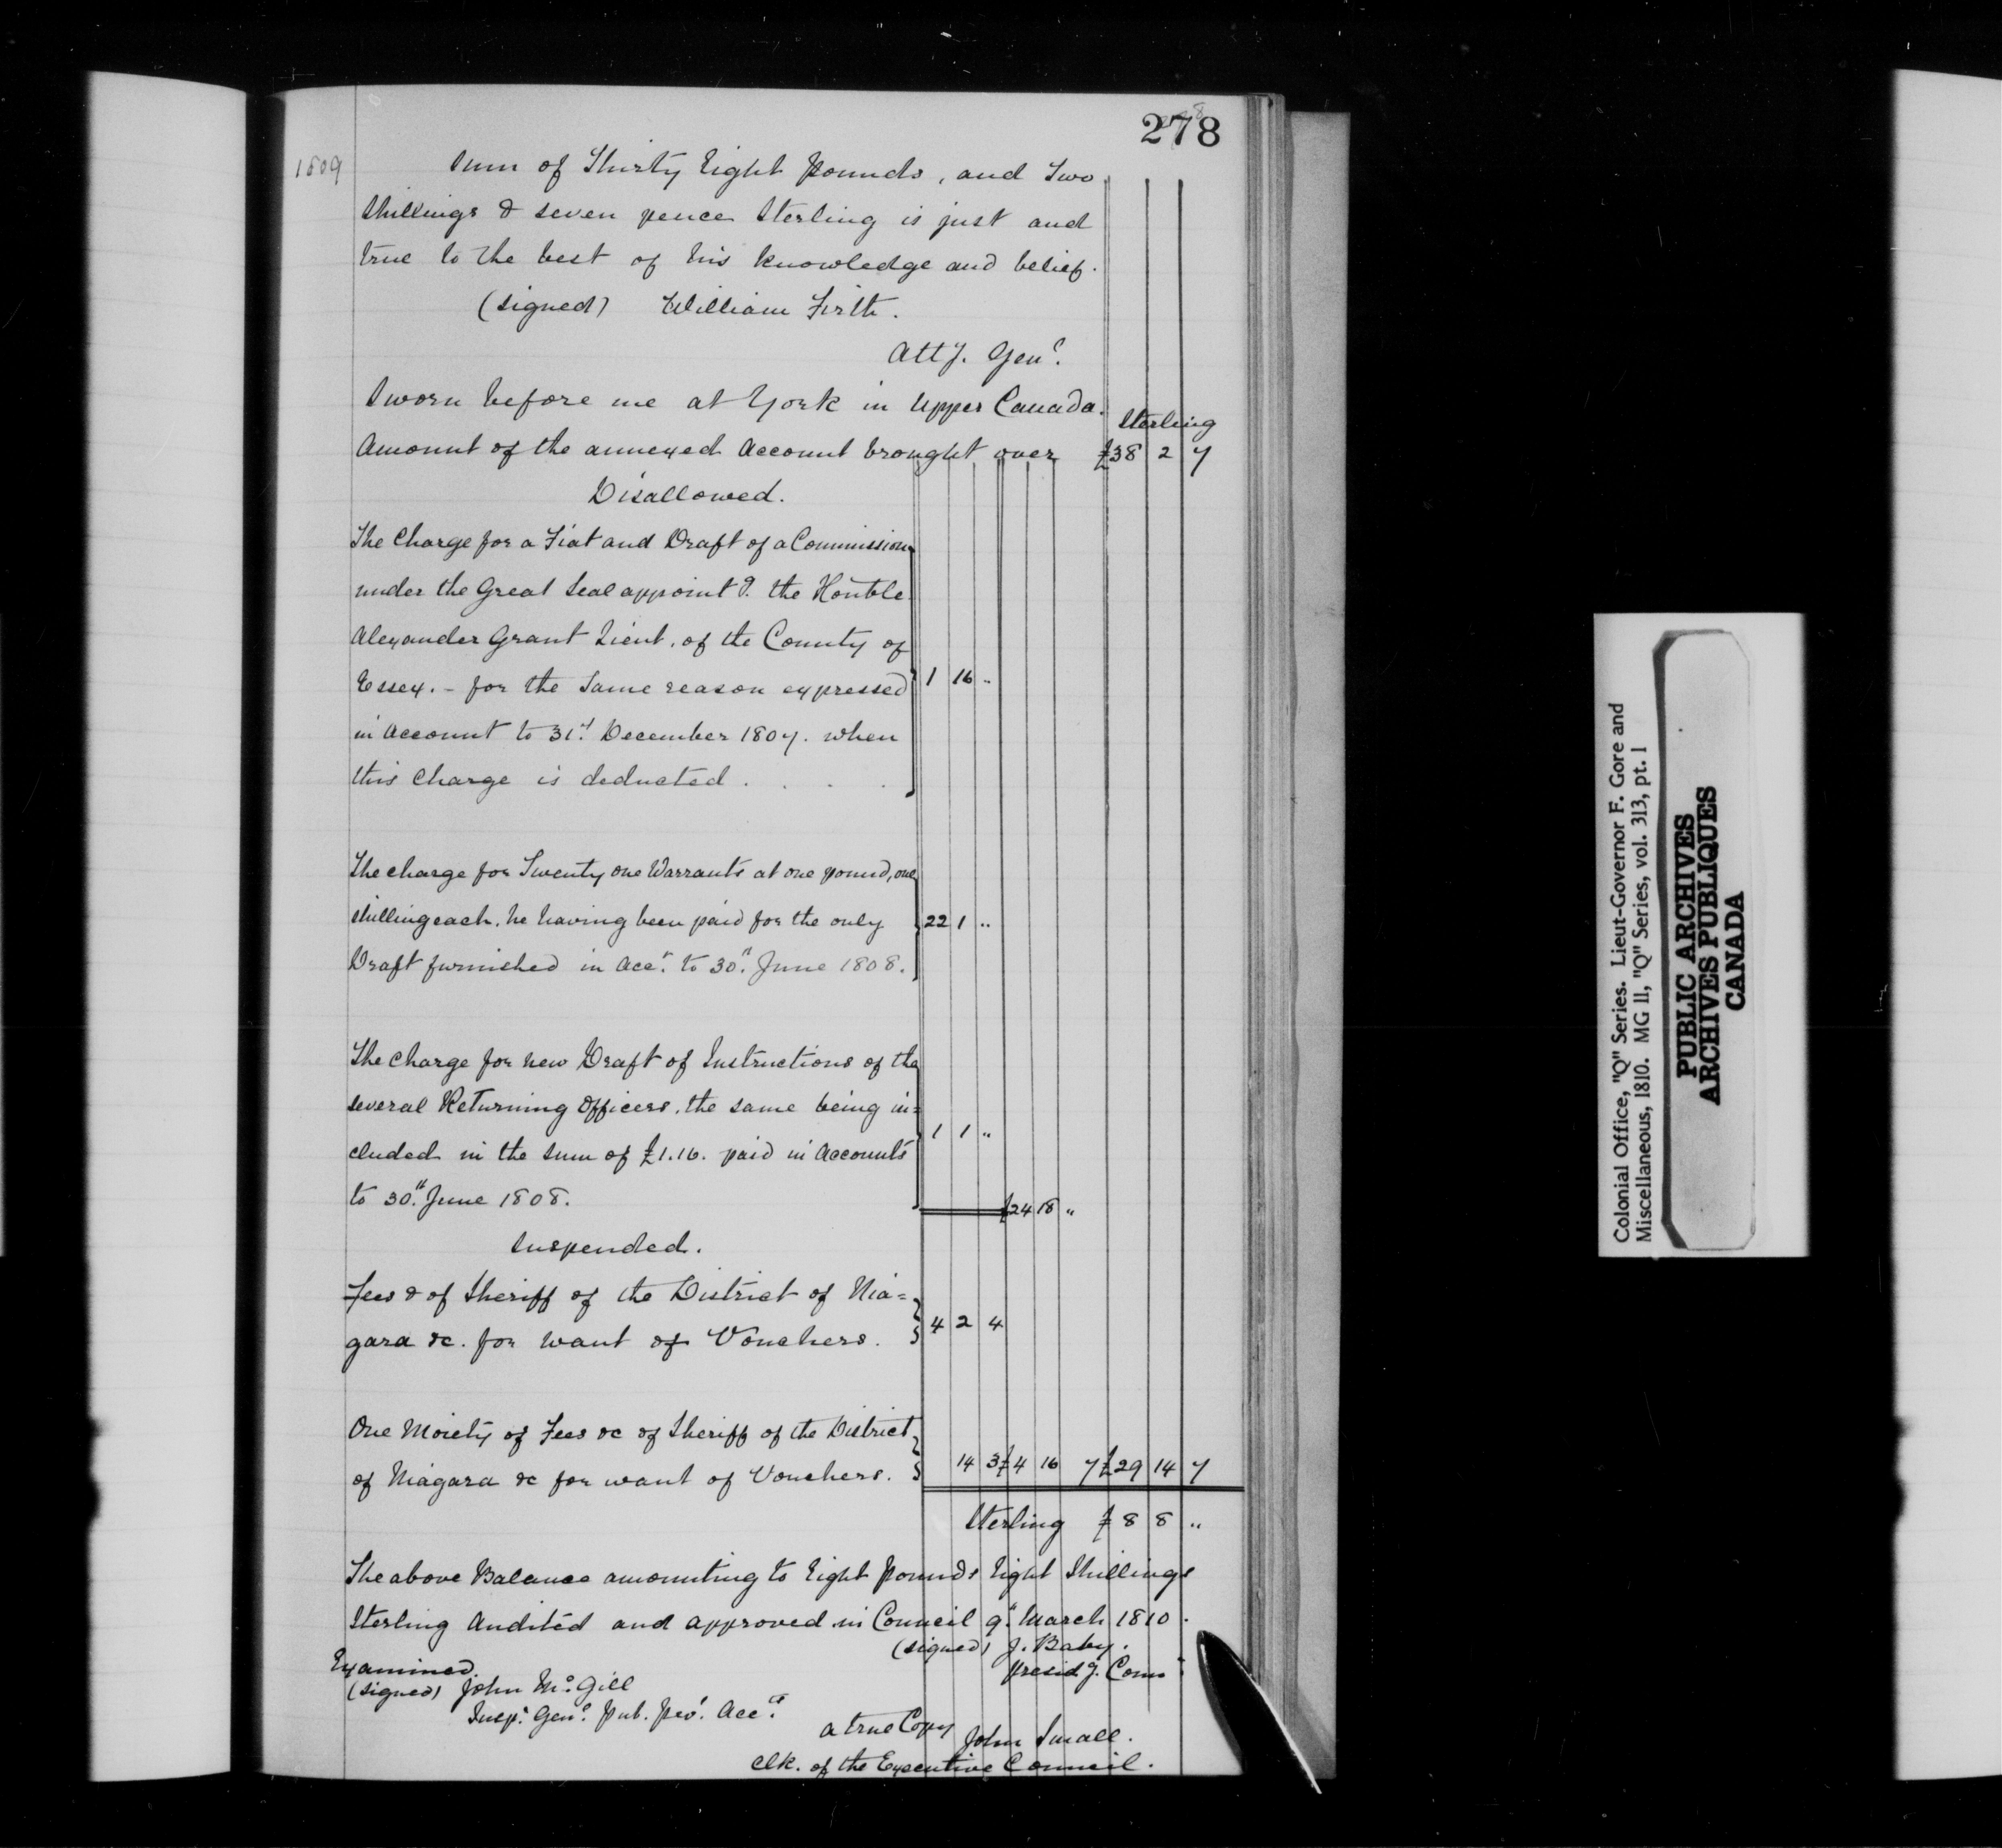 278
1809
Sum of Thirty Eight Pounds, and Two
Shillings & seven pence Sterling is just and
true to the best of his knowledge and belief.
(signed) William Firth.
Atty. Genl.
Sworn before me at York in Upper Canada.
Sterling
Amount of the annexed Account brought over £38 2 7
Disallowed.
The Charge for a Fiat and Draft of a Commission
under the Great Seal appointg. the Honble
Alexander Grant Lieut. of the County of
Essex. - for the same reason expressed 1 16 "
in Account to 31st December 1807. when
this Charge is deducted . . . .
The charge for Twenty one Warrants at one pound, one
shilling each. he having been paid for the only 22 1 "
Draft furnished in Acct. to 30th June 1808.
The charge for new Draft of Instructions of the
several Returning Officers. the same being in= 1 1 "
cluded in the sum of £1.16. paid in Accounts
to 30th June 1808. £24 18 "
Suspended.
Fees & of Sheriff of the District of Nia=
gara &c. for want of Vouchers. 4 2 4
One Moiety of Fees &c of Sheriff of the District
of Niagara &c for want of Vouchers. 14 3 £4 16 7 £29 14 7
Sterling £8 8 "
The above Balance amounting to Eight Pounds Eight Shillings
Sterling Audited and approved in Council 9th March 1810.
(signed) J. Baby.
Presidg. Coun
Examined.
(signed) John McGill
Inspr. Genl. Pub. Prov. Accts
a true Copy John Small.
Clk. of the Executive Council.
Colonial Office, "Q" Series. Lieut-Governor F. Gore and
Miscellaneous, 1810. MG 11, "Q" Series, vol. 313, pt. 1
PUBLIC ARCHIVES
ARCHIVES PUBLIQUES
CANADA